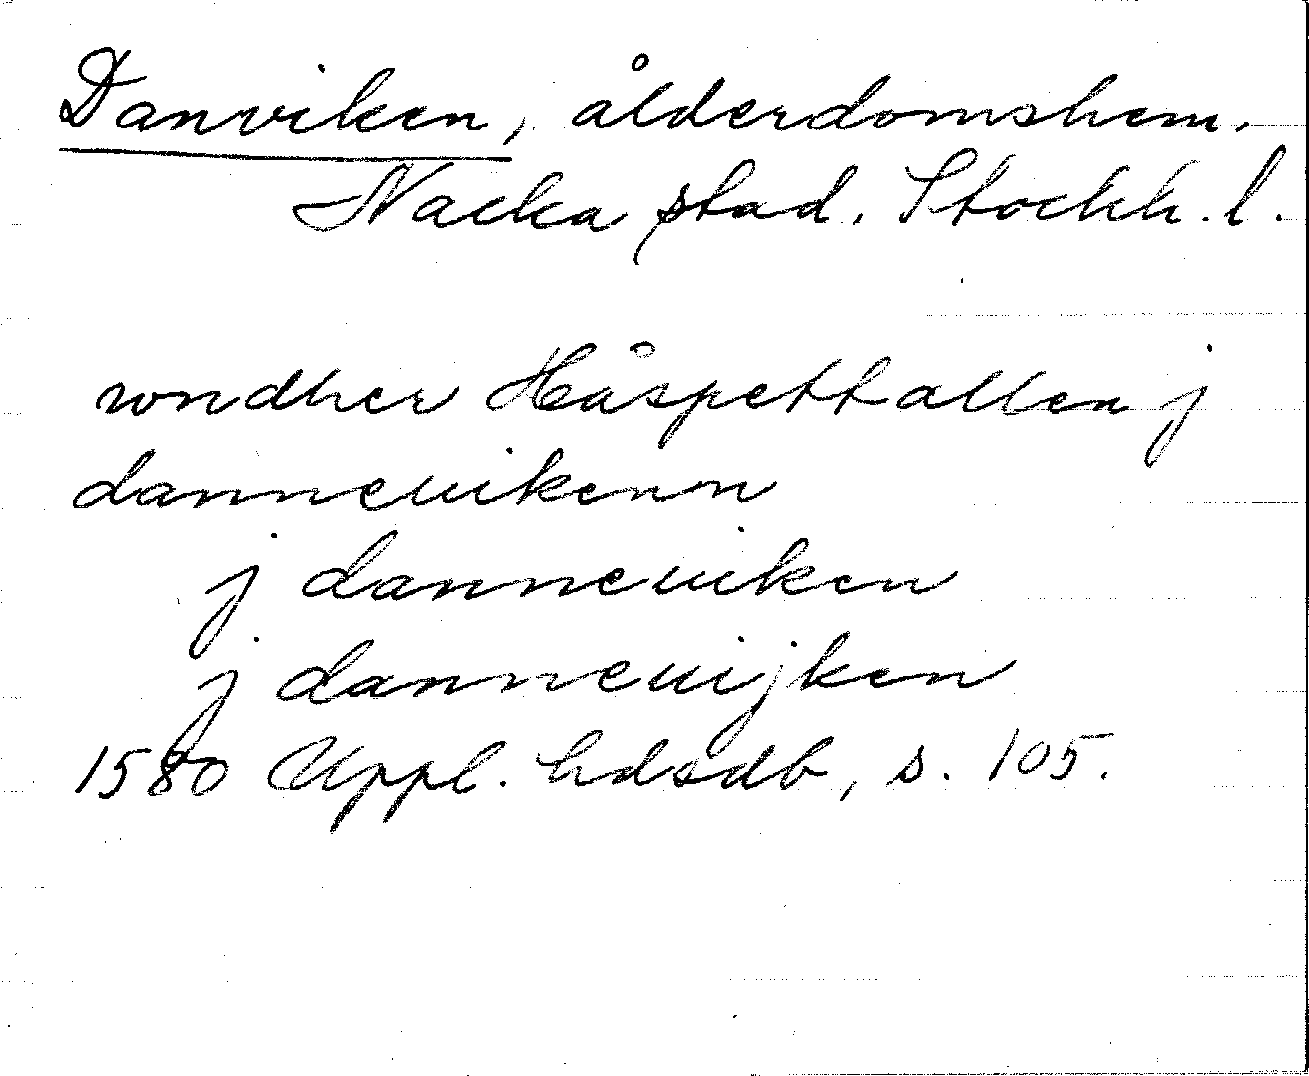 Danviken, ålderdomshem.
Nacka stad. Stockh. l.
wndher Håspettallen j
danneuikenn
j danneuiken
j danneuijken
1580 Uppl. hdsdb, s. 105.